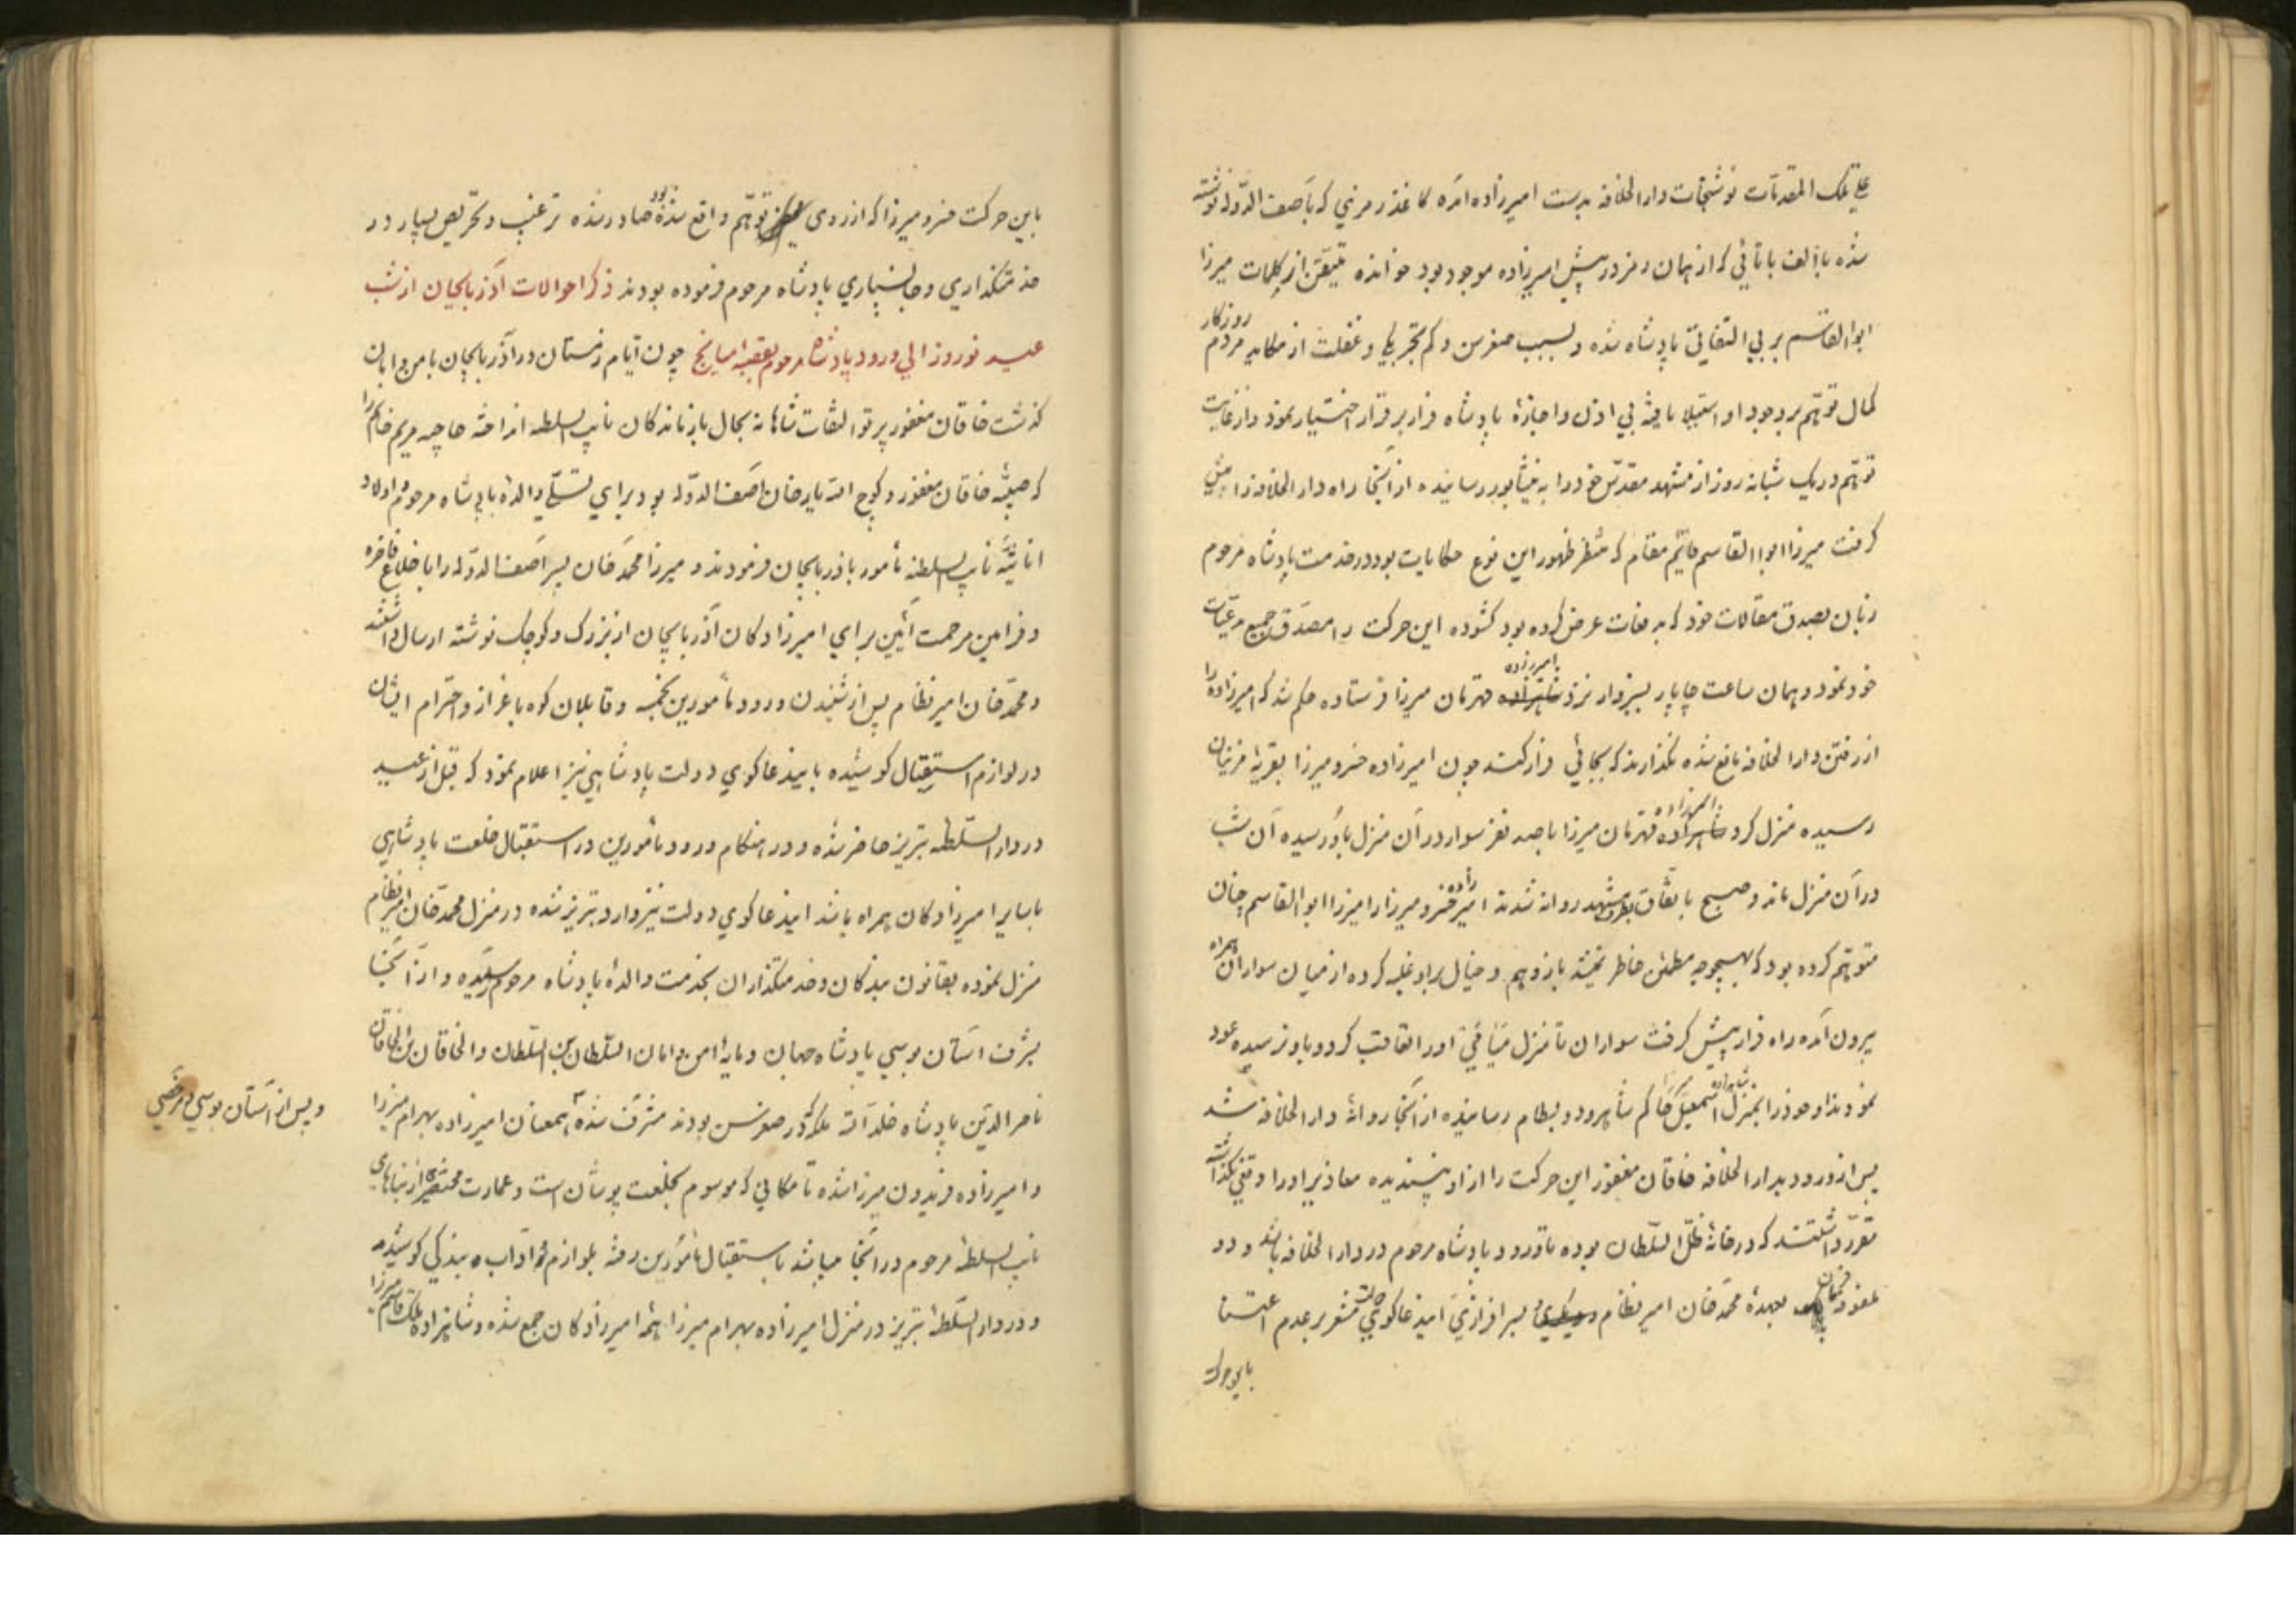 علی تلک المقدمات نوشتجات دارالخلافه بدست امیرزاده آمده کاغذ رمزی که بآصف الدوله نوشته
شده باالف باتائی که از همان رمز در پیش امیرزاده موجود بود خوانده متیقن از کلمات میرزا
ابوالقاسم بر بی التفاتی پادشاه شده و بسبب صغر سن و کم تجربکی و غفلت از مکاید مردم روزکار
کمال توهم بر وجود او استیلا یافته بی اذن و اجازهٔ پادشاه فرار بر قرار اختیار نمود و از غایت
توهم در یک شبانه روز از مشهد مقدس خود را به نیشابور رسانیده از آنجا راه دارالخلافه را پیش
کرفت میرزا ابوالقاسم قایم مقام که منتظر ظهور این نوع حکایات بود در خدمت پادشاه مرحوم
زبان بصدق مقالات خود که بدفعات عرض کرده بود کشوده این حرکت را مصدق جمیع مدعیات
خود نمود و همان ساعت چاپار بسبزوار نزد امیرزاده قهرمان میرزا فرستاده حکم شد که امیرزاده را
از رفتن دارالخلافه مانع شده نکذارند که بجائی فرار کند چون امیرزاده خسرو میرزا بقریهٔ مزینان
رسیده منزل کرد امیرزاده قهرمان میرزا با صد نفر سوار در آن منزل باو رسیده آن شب
در آن منزل ماند و صبح باتفاق بطرف مشهد روانه شدند امیرزاده خسرو میرزا را میرزا ابوالقاسم چنان
متوهم کرده بود که بهیچوجه مطمئن خاطر نمیشد باز وهم و خیال بر او غلبه کرده از میان سواران همراه
بیرون آمده راه فرار پیش کرفت سواران تا منزل میامی او را تعاقب کرده و باو نرسیده عود
نمودند او خود را بمنزل شاهزاده اسمعیل میرزا حاکم شاهرود و بسطام رسانیده از آنجا روانهٔ دارالخلافه شد
پس از ورود بدارالخلافه خاقان مغفور این حرکت را از او نپسندیده معاذیر او را وقعی نکذاشته
مقرر داشتند که در خانهٔ ظل السلطان بوده تا ورود پادشاه مرحوم در دارالخلافه باشد و دو
طغرا فرمان بعهدهٔ محمد خان امیر نظام و بسر افرازی این دعاکوی دولت مشعر بر عدم اعتنا
باین حرکت
باین حرکت خسرو میرزا که از روی توهم واقع شده بود صادر شده ترغیب و تحریص بسیار در
خدمتکذاری و جانسپاری پادشاه مرحوم فرموده بودند ذکر احوالات آذربایجان از شب
عید نوروز الی ورود پادشاه مرحوم بقصبهٔ میانج چون ایام زمستان در آذربایجان بامن و امان
کذشت خاقان مغفور پرتو التفات شاهانه بحال بازماندکان نایب السلطنه انداخته حاجیه مریم خانم را
که صبیهٔ خاقان مغفور و کوچ الله یار خان آصف الدوله بود برای تسلی والدهٔ پادشاه مرحوم و اولاد
اناثیهٔ نایب السلطنه مأمور باذربایجان فرمودند و میرزا محمد خان پسر آصف الدوله را با خلاع فاخره
و فرامین مرحمت آئین برای امیرزادکان آذربایجان از بزرک و کوچک نوشته ارسال داشتند
و محمد خان امیر نظام پس از شنیدن ورود مأمورین بخمسه و قافلان کوه باعزاز و احترام ایشان
در لوازم استقبال کوشیده باین دعاکوی دولت پادشاهی نیز اعلام نمود که قبل از عید
در دارالسلطنه تبریز حاضر شده و در هنکام ورود مأمورین در استقبال خلعت پادشاهی
با سایر امیرزادکان همراه باشد این دعاکوی دولت نیز وارد تبریز شده در منزل محمد خان امیر نظام
منزل نموده بقانون بندکان و خدمتکذاران بخدمت والدهٔ پادشاه مرحوم رسیده و از آنجا
بشرف آستان بوسی پادشاه جهان و مایهٔ امن و امان السلطان بن السلطان و الخاقان بن الخاقان
ناصرالدین پادشاه خلد الله ملکه که در صغر سن بودند مشرف شده همعنان امیرزاده بهرام میرزا
و پس از آستان بوسی و مرخصی
و امیرزاده فریدون میرزا شده تا مکانی که موسوم بخلعت پوشان است و عمارت مختصری از بناهای
نایب السلطنه مرحوم در آنجا میباشد باستقبال مأمورین رفته بلوازم و آداب بندکی کوشیدم
و در دارالسلطنهٔ تبریز در منزل امیرزاده بهرام میرزا همه امیرزادکان جمع شده و شاهزاده ملک قاسم میرزا